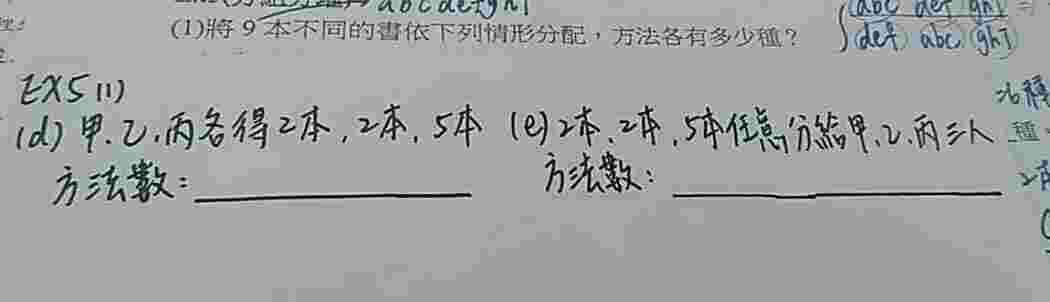 abcdefghi
(1)將 9 本不同的書依下列情形分配，方法各有多少種？
abc def ghi
def abc ghi
EX5 (1)
(d) 甲.乙.丙各得2本, 2本, 5本 (e) 2本, 2本, 5本任意分給甲.乙.丙三人
方法數: 方法數:
種